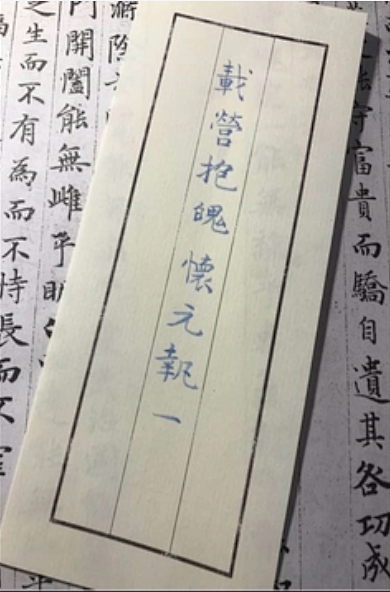 守富貴而驕自遺其咎功成
載營抱魄懷元執一
滌除
門開闔能無雌乎明
之生而不有為而不恃長而不宰